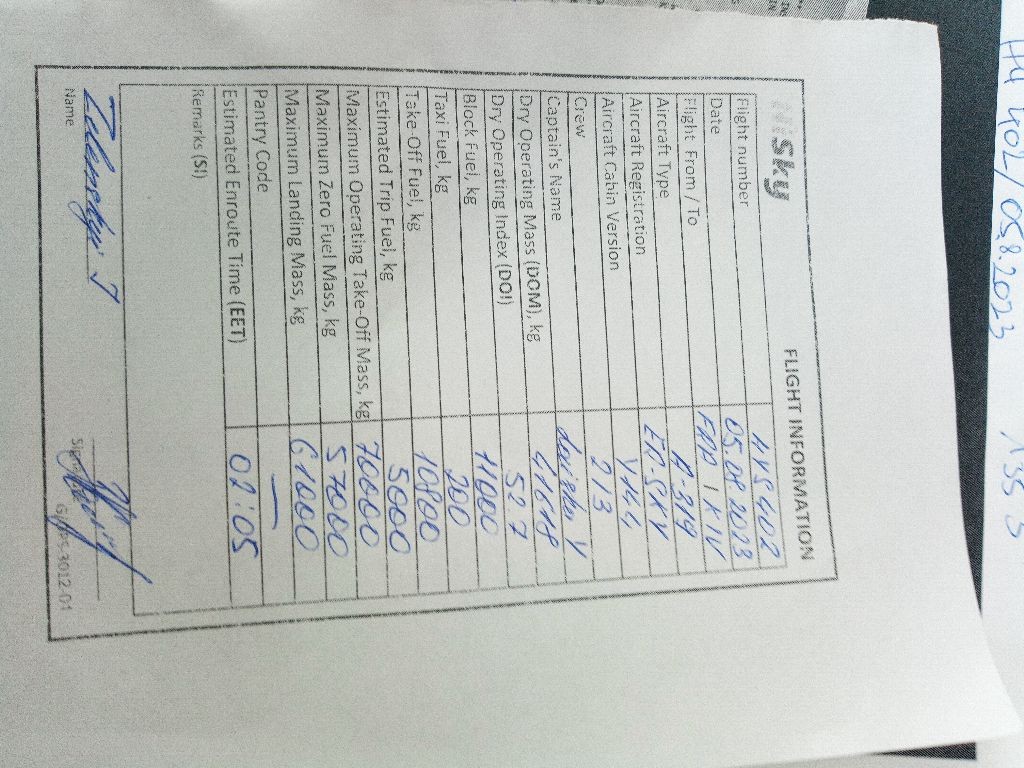 H4 402/05.8.2023
HiSky
FLIGHT INFORMATION
Flight number HYS402
Date 05.08.2023
Flight From / To / KIV
Aircraft Type A-319
Aircraft Registration ER-SKY
Aircraft Cabin Version Y144
Crew 2/3
Captain's Name
Dry Operating Mass (DOM), kg 41618
Dry Operating Index (DOI) 52.7
Block Fuel, kg 11000
Taxi Fuel kg 200
Take Off Fuel, kg 10800
Estimated Trip Fuel, kg 5000
Maximum Operating Take-Off Mass, kg 70000
Maximum Zero Fuel Mass, kg 57000
Maximum Landing Mass, kg 61000
Pantry Code —
Estimated Enroute Time (EET) 02:05
Remarks (SI)
Name